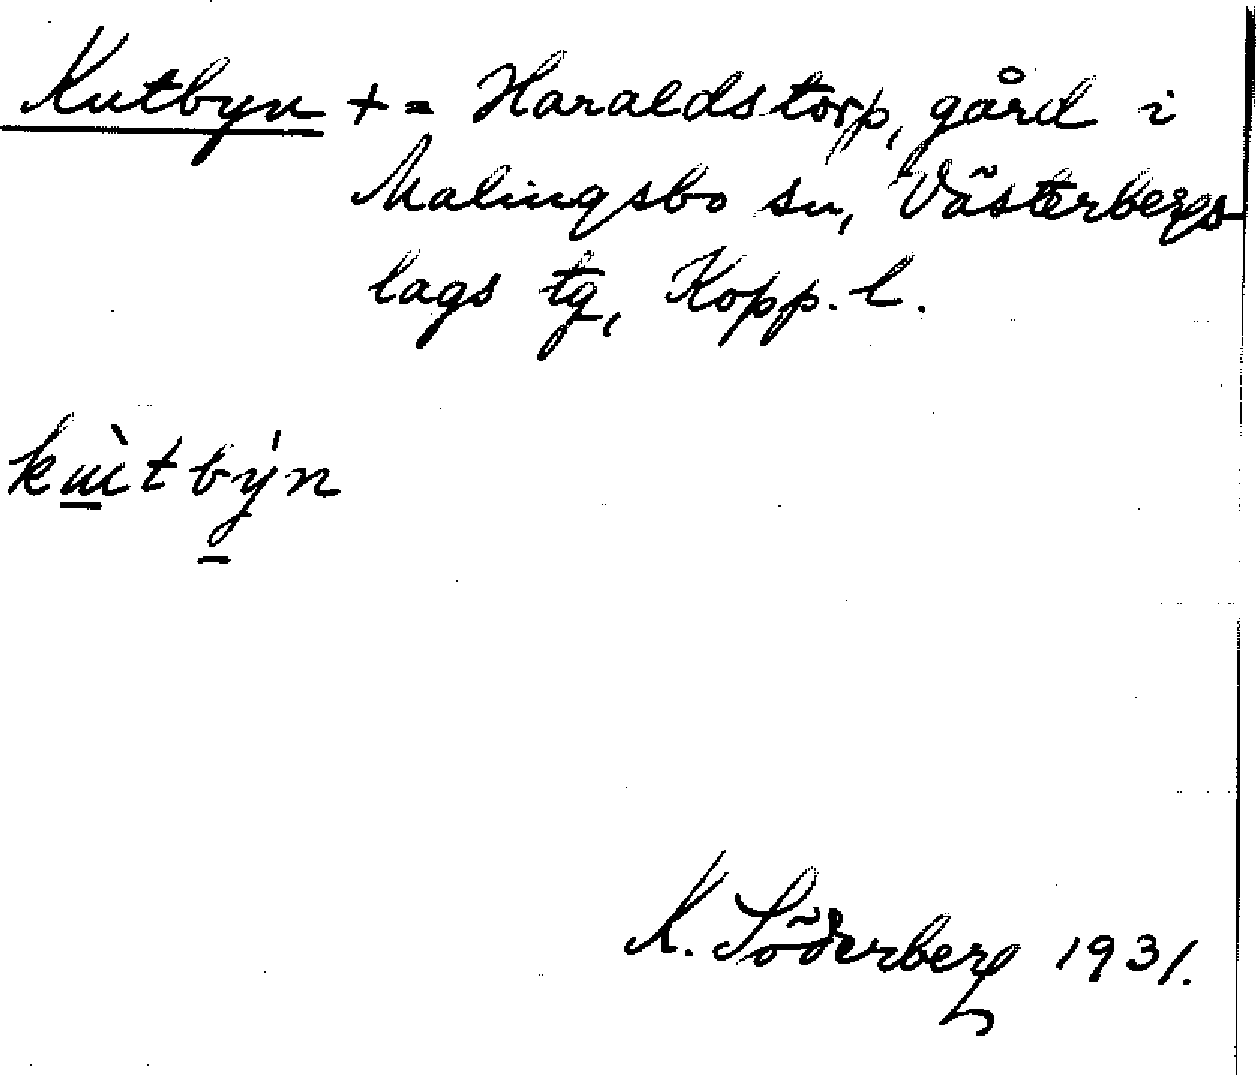 Kutbyn + = Haraldstorp, gård i
Malingsbo sn, Västerbergs-
lags tg, Kopp. l.
kɯ̀tbýn
K. Söderberg 1931.